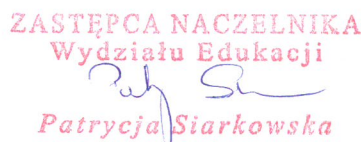 ZASTĘPCA NACZELNIKA
Wydziału Edukacji
Patrycja Siarkowska